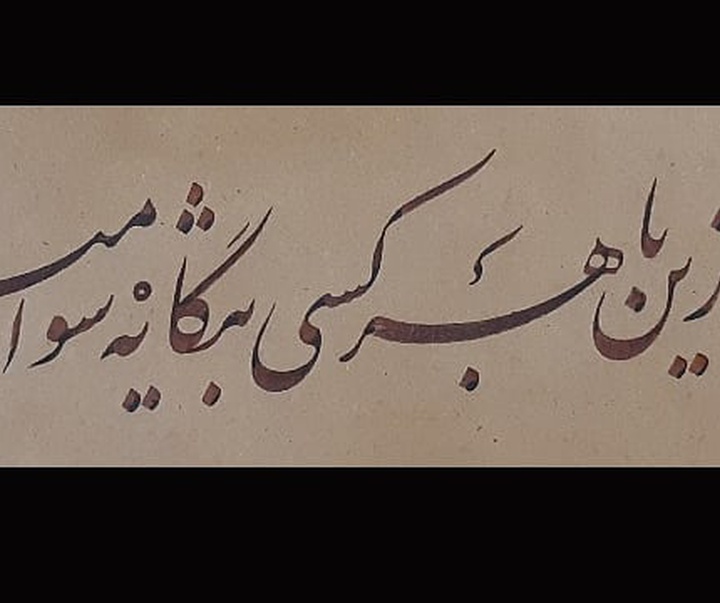 زین با هر کسی بیگانه شو